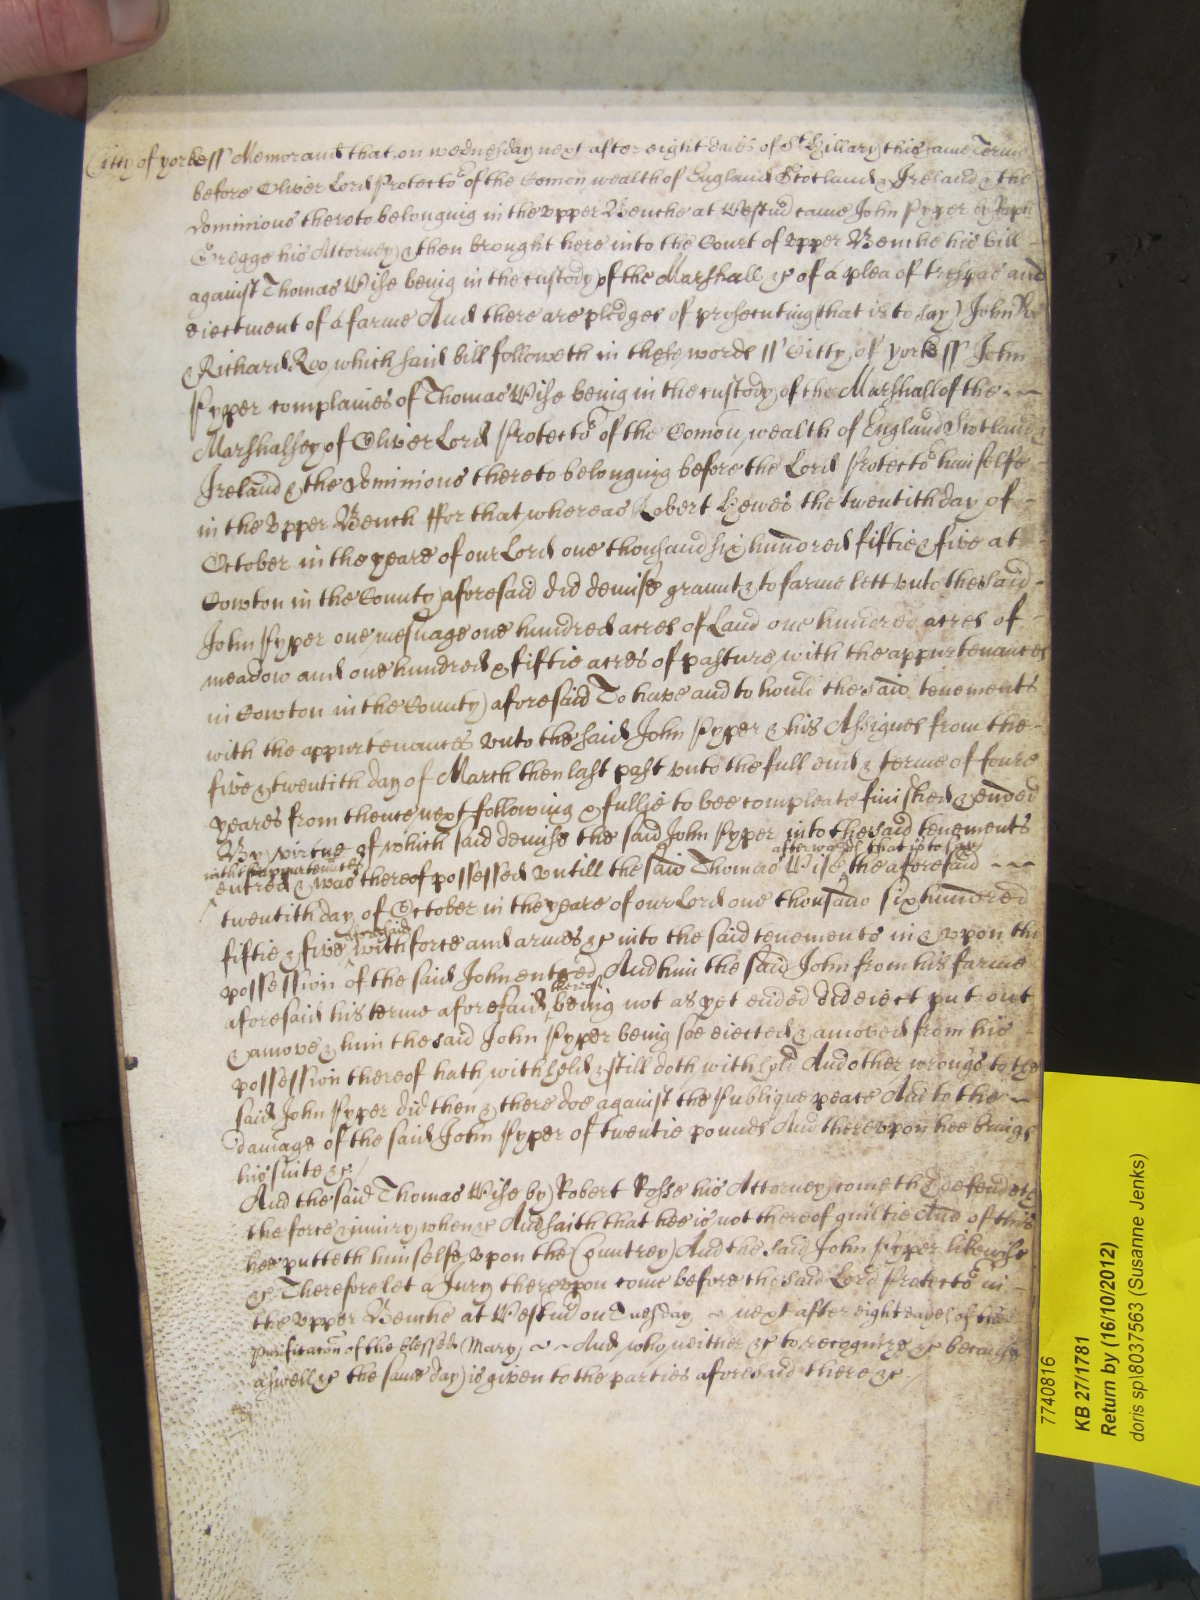 Citty of yorke ss Memorand that on wednesday next after eight daies of St Hillary this same Terme
before Oliver Lord Protector of the Comon wealth of England Scotland & Ireland & the
dominions thereto belonging in the upper Benche at Westm came John Pyper by Raph
Gregge his Attorney & then brought here into the Court of upper Benche his bill
against Thomas Wise being in the custody of the Marshall &c of a plea of trespas and
eiectment of a farme And there are pledges of prosecuting that is to say John Doe
& Richard Roo which said bill followeth in these words ss Citty of yorke ss John
Pyper complaines of Thomas Wise being in the custody of the Marshall of the
Marshalsey of Oliver Lord Protector of the Comon wealth of England Scotland &
Ireland & the dominions thereto belonging before the Lord Protector himselfe
in the upper Bench ffor that whereas Robert Hewes the twentith day of
October in the yeare of our Lord one thousand six hundred fiftie & five at
Cowton in the County aforesaid did demise graunt & to farme lett unto the said
John Pyper one mesuage one hundred acres of Land one hundred acres of
meadow and one hundred & fiftie acres of pasture with the appurtenances
in Cowton in the County aforesaid To have and to hould the said tenements
with the appurtenances unto the said John Pyper & his Assignes from the
five & twentith day of March then last past unto the full end & terme of foure
yeares from thence next following & fullie to bee compleate finished & ended
By virtue of which said demise the said John Pyper into the said tenements
with thappurtenances afterwards that is to say
entred & was thereof possessed untill the said Thomas Wise the aforesaid
twentith day of October in the yeare of our Lord one thousand six hundred
aforesaid
fiftie & five with force and armes &c into the said tenements in & upon the
possession of the said John entred And him the said John from his farme
thereof
aforesaid his terme aforesaid being not as yet ended did eiect put out
& amove & him the said John Pyper being soe eiected & amoved from his
possession thereof hath withheld & still doth withhold And other wrongs to the
said John Pyper did then & there doe against the Publique peace And to the
damage of the said John Pyper of twentie pounds And thereupon hee brings
his suite &c
And the said Thomas Wise by Robert Rosse his Attorney cometh & defendeth
the force & iniury when &c And saith that hee is not thereof guiltie And of this
hee putteth himselfe upon the Countrey And the said John Pyper likewise
&c Therefore let a Jury thereupon come before the said Lord Protector in
the upper Benche at Westm on Tuesday next after eight daies of the
purificacon of the blessed Mary And who neither &c to recognize &c because
aswell &c the same day is given to the parties aforesaid there &c
7740816
KB 27/1781
Return by (16/10/2012)
doris sp\8037563 (Susanne Jenks)